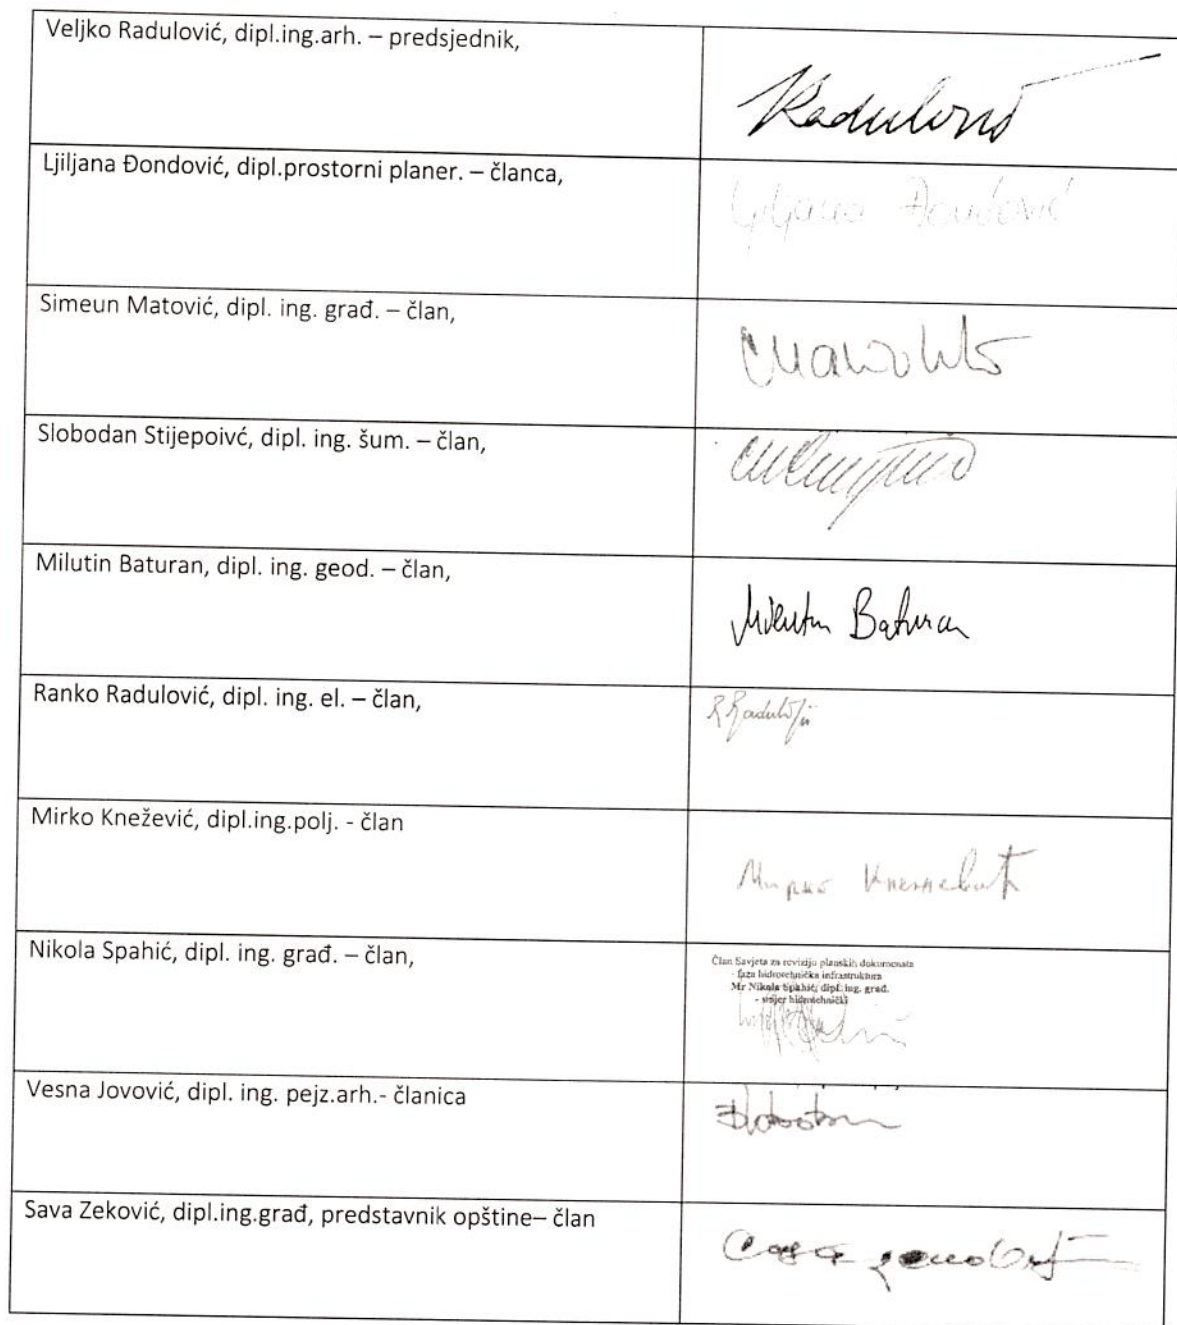 Veljko Radulović, dipl.ing.arh. – predsjednik,
Radulović
Ljiljana Đondović, dipl.prostorni planer. – članca,
Ljiljana Đondović
Simeun Matović, dipl. ing. građ. – član,
Slobodan Stijepoivć, dipl. ing. šum. – član,
Milutin Baturan, dipl. ing. geod. – član,
Milutin Baturan
Ranko Radulović, dipl. ing. el. – član,
R Radulović
Mirko Knežević, dipl.ing.polj. - član
Мирко Кнежевић
Nikola Spahić, dipl. ing. građ. – član,
Član Savjeta za reviziju planskih dokumenata
- faza hidrotehnička infrastruktura
Mr Nikola Spahić, dipl. ing. građ.
- smjer hidrotehnički
Vesna Jovović, dipl. ing. pejz.arh.- članica
Sava Zeković, dipl.ing.građ, predstavnik opštine– član
Сава Зековић